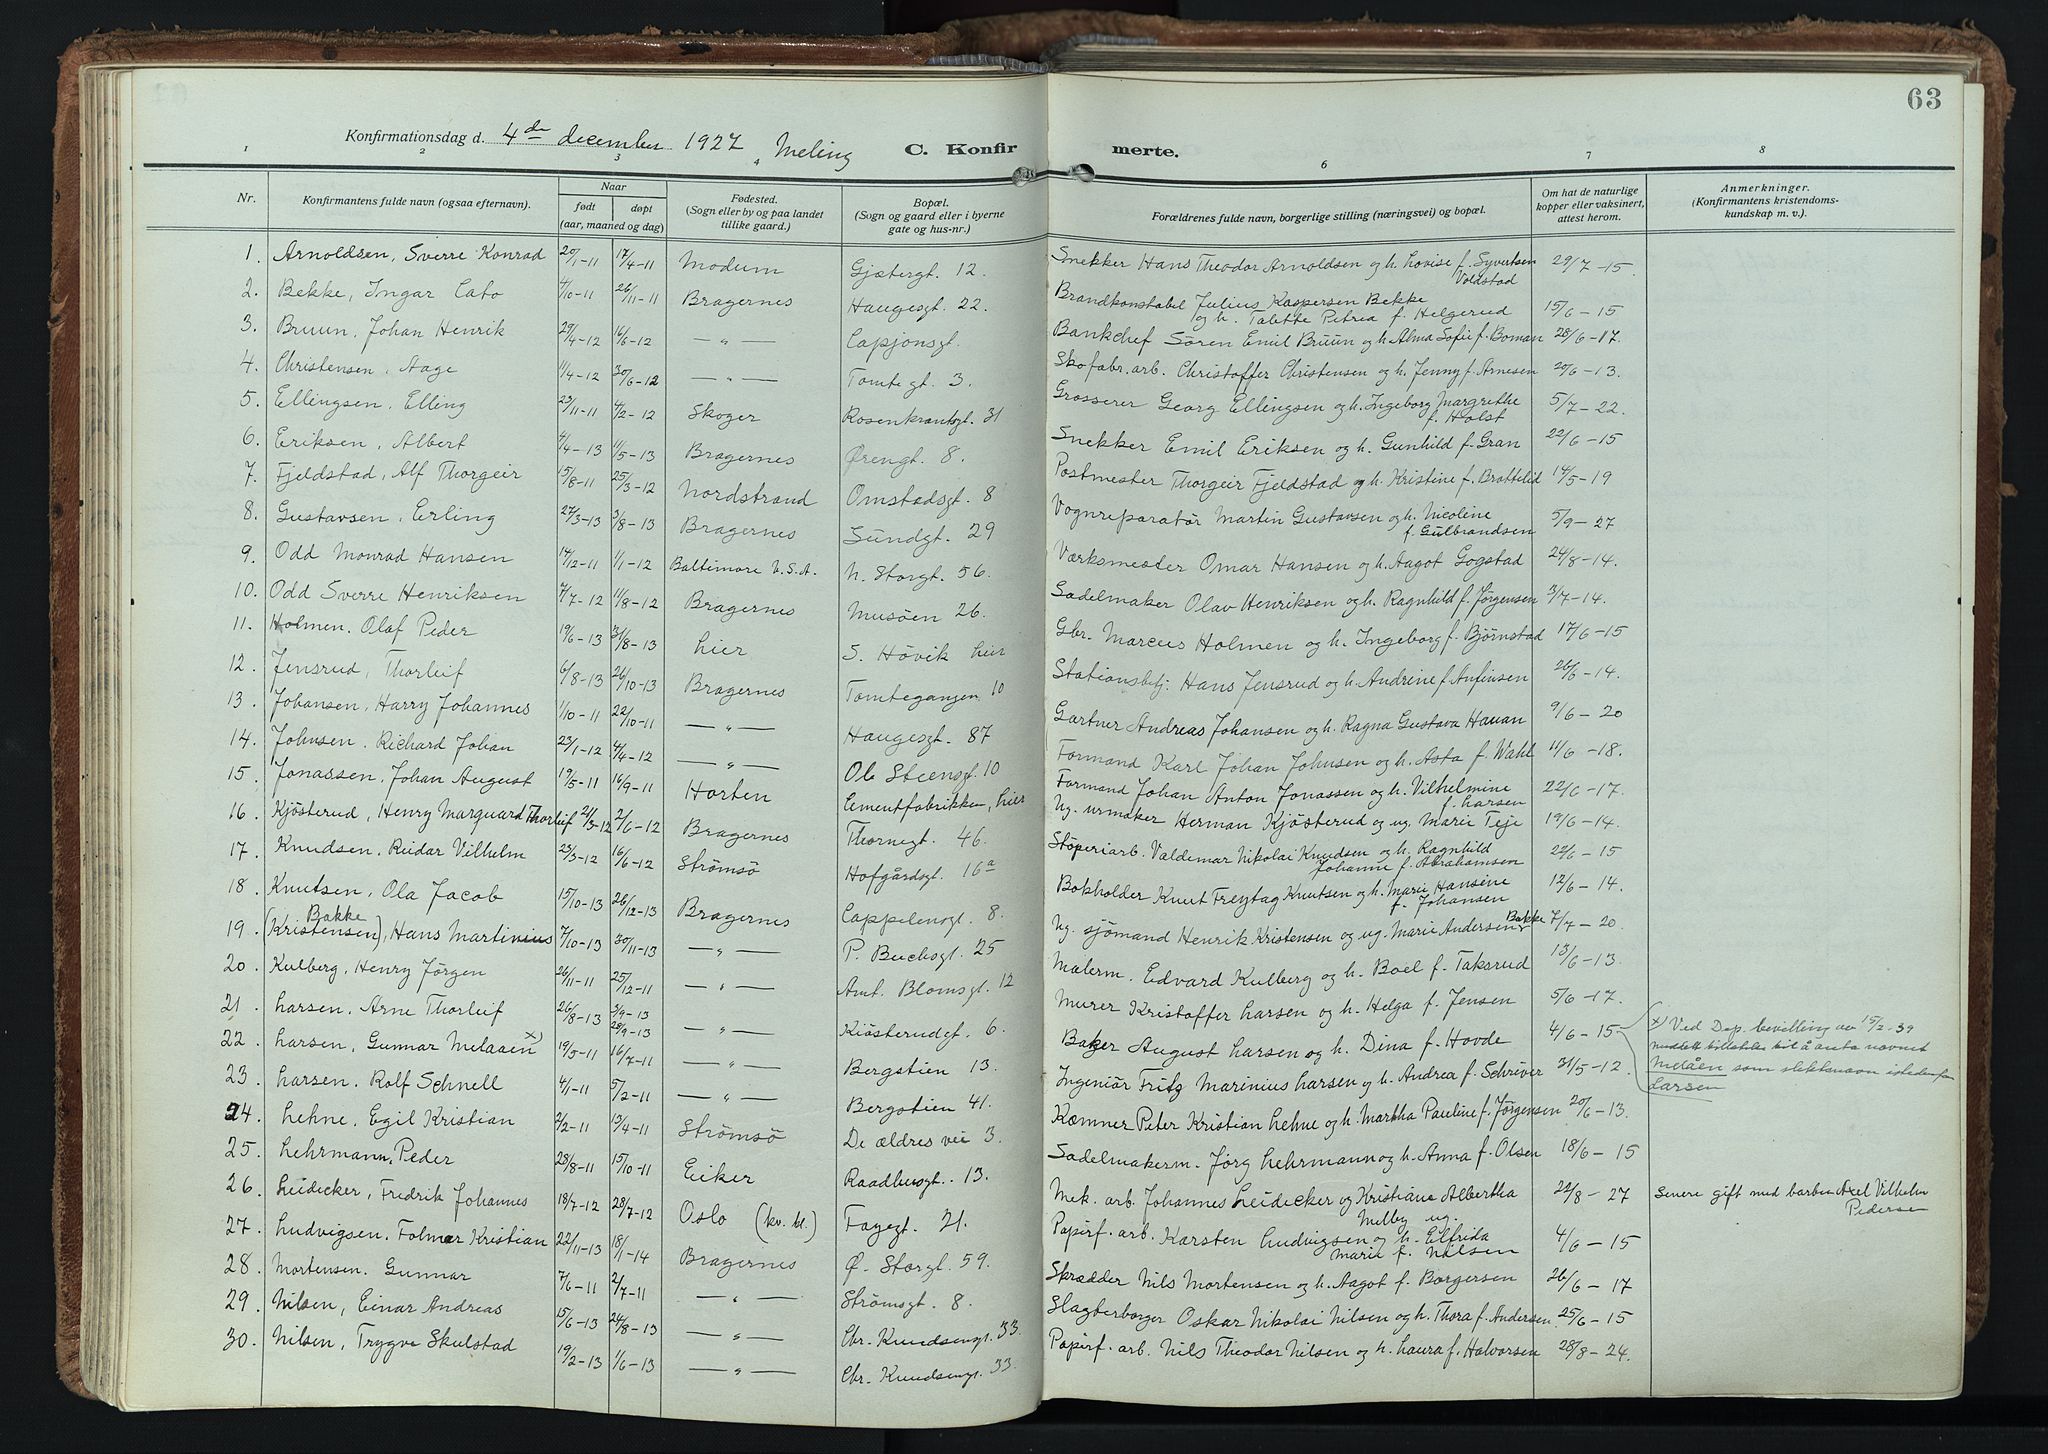 63
Konfirmationsdag d. 4de december 1927 Meling C. Konfirmerte.
1 2 3 4 6 7 8
Nr. Konfirmantens fulde navn (ogsaa efternavn). Naar født døpt (aar, maaned og dag) Fødested. (Sogn eller by og paa landet tillike gaard.) Bopæl. (Sogn og gaard eller i byerne gate og hus-nr.) Forældrenes fulde navn, borgerlige stilling (næringsvei) og bopæl. Om hat de naturlige kopper eller vaksinert, attest herom. Anmerkninger. (Konfirmantens kristendomskundskap m. v.)
1. Arnoldsen, Sverre Konrad 20/1-11 17/4-11 Modum Gjætergt. 12. Snekker Hans Theodor Arnoldsen og h. Lovise f. Syvertsen Voldstad 29/7-15.
2. Bekke, Ingar Cato 4/10-11 26/11-11 Bragernes Haugesgt. 22. Brandkonstabel Julius Kaspersen Bekke og h. Talette Petrea f. Helgerud 15/6-15
3. Bruun, Johan Henrik 29/4-12 16/6-12 —"— Capjonsgt. Bankchef Sören Emil Bruun og h. Alma Sofie f. Boman 28/6-17.
4. Christensen, Aage 11/4-12 30/6-12 —"— Tomtegt. 3. Skofabr. arb. Christoffer Christensen og h. Jenny f. Arnesen 20/6-13.
5. Ellingsen, Elling 23/11-11 4/2-12 Skoger Rosenkrantsgt. 31 Grosserer Georg Ellingsen og h. Ingeborg Margrethe f. Holst 5/7-22.
6. Eriksen, Albert 4/4-13 11/5-13 Bragernes Örengt. 8. Snekker Emil Eriksen og h. Gunhild f. Gran 22/6-15
7. Fjeldstad, Alf Thorgeir 15/8-11 25/3-12 Nordstrand Omstadsgt. 8 Postmester Thorgeir Fjeldstad og h. Kristine f. Brattelid 14/5-19
8. Gustavsen, Erling 27/3-13 3/8-13 Bragernes Sundgt. 29 Vognreparatör Martin Gustavsen og h. Nicoline f. Gulbrandsen 5/9-27
9. Odd Monrad Hansen 14/12-11 1/1-12 Baltimore U.S.A. N. Storgt. 56. Værksmester Omar Hansen og h. Aagot Gogstad 24/8-14.
10. Odd Sverre Henriksen 7/7-12 11/8-12 Bragernes Musöen 26. Sadelmaker Olav Henriksen og h. Ragnhild f. Jörgensen 3/7-14.
11. Holmen, Olaf Peder 19/6-13 31/8-13 Lier S. Hövik Lier Gbr. Marcus Holmen og h. Ingeborg f. Björnstad 17/6-15
12. Jensrud, Thorleif 6/8-13 26/10-13 Bragernes Tomtegangen 10 Stationsbetj. Hans Jensrud og h. Andrine f. Anfinsen 26/6-14.
13. Johansen, Harry Johannes 1/10-11 22/10-11 —"— Haugesgt. 87 Gartner Andreas Johansen og h. Ragna Gustava Hauan 9/6-20
14. Johnsen, Richard Johan 23/1-12 4/4-12 —"— Ole Steensgt. 10 Formand Karl Johan Johnsen og h. Asta f. Wahl 11/6-18.
15. Jonassen, Johan August 19/5-11 16/9-11 Horten Cementfabrikken, Lier Formand Johan Anton Jonassen og h. Vilhelmine f. Larsen 22/6-17.
16. Kjösterud, Henry Marquard Thorleif 21/3-12 2/6-12 Bragernes Thornegt. 46. Ug. urmaker Herman Kjösterud og ug. Marie Teje 19/6-14.
17. Knudsen, Reidar Vilhelm 23/3-12 16/6-12 Strömsö Hofgårdsgt. 16a Stöperiarb. Valdemar Nikolai Knudsen og h. Ragnhild Johanne f. Abrahamsen 22/6-15
18. Knutsen, Ola Jacob 15/10-13 26/12-13 Bragernes Cappelensgt. 8. Bokholder Knut Freytag Knutsen og h. Marie Hansine f. Johansen 12/6-14.
19. (Kristensen) Bakke, Hans Martinius 7/10-13 30/11-13 —"— P. Buchsgt. 25 Ug. sjömand Henrik Kristensen og ug. Marie Andersen Bakke 7/7-20.
20. Kulberg, Henry Jörgen 26/11-11 25/12-11 —"— Amt. Blomsgt. 12 Malerm. Edvard Kulberg og h. Boel f. Taksrud 13/6-13.
21. Larsen, Arne Thorleif 26/8-13 28/9-13 —"— Kiösterudgt. 6. Murer Kristoffer Larsen og h. Helga f. Jensen 5/6-17.
22. Larsen, Gunnar Melaaen x) 19/5-11 16/7-11 —"— Bergstien 13. Baker August Larsen og h. Dina f. Hovde 4/6-15 x) Ved Dep. bevilling av 15/2-39
meddelt tilladelse til å anta navnet
Melåen som slektsnavn istedenfor
Larsen
23. Larsen, Rolf Schnell 4/1-11 5/2-11 —"— Bergstien 41. Ingeniör Fritz Marinius Larsen og h. Andrea f. Schriver 31/5-12.
24. Lehne, Egil Kristian 2/2-11 13/4-11 Strömsö De ældres vei 3. Kæmner Peter Kristian Lehne og h. Martha Pauline f. Jörgensen 20/6-13.
25. Lehrmann, Peder 28/8-11 15/10-11 Eiker Raadhusgt. 13. Sadelmakerm. Jörg Lehrmann og h. Anna f. Olsen 18/6-15
26. Leidecker, Fredrik Johannes 18/7-12 28/7-12 Oslo (kv. bl.) Fagegt. 21. Mek. arb. Johannes Leidecker og Kristiane Albertha Melby ug. 22/8-27 Senere gift med barber Axel Vilhelm Pedersen
27. Ludvigsen, Folmer Kristian 22/11-13 18/1-14 Bragernes Ö. Storgt. 59. Papirf. arb. Karsten Ludvigsen og h. Elfrida Marie f. Nilsen 4/6-15
28. Mortensen, Gunnar 7/6-11 2/7-11 —"— Strömsgt. 8. Skrædder Nils Mortensen og h. Aagot f. Borgersen 26/6-17
29. Nilsen, Einar Andreas 15/6-13 24/8-13 —"— Chr. Knudsensgt. 33. Slagterborger Oskar Nikolai Nilsen og h. Thora f. Andersen 25/6-15
30. Nilsen, Trygve Skulstad 19/2-13 1/6-13 —"— Chr. Knudsensgt. 33. Papirf. arb. Nils Theodor Nilsen og h. Laura f. Halvorsen 28/8-24.